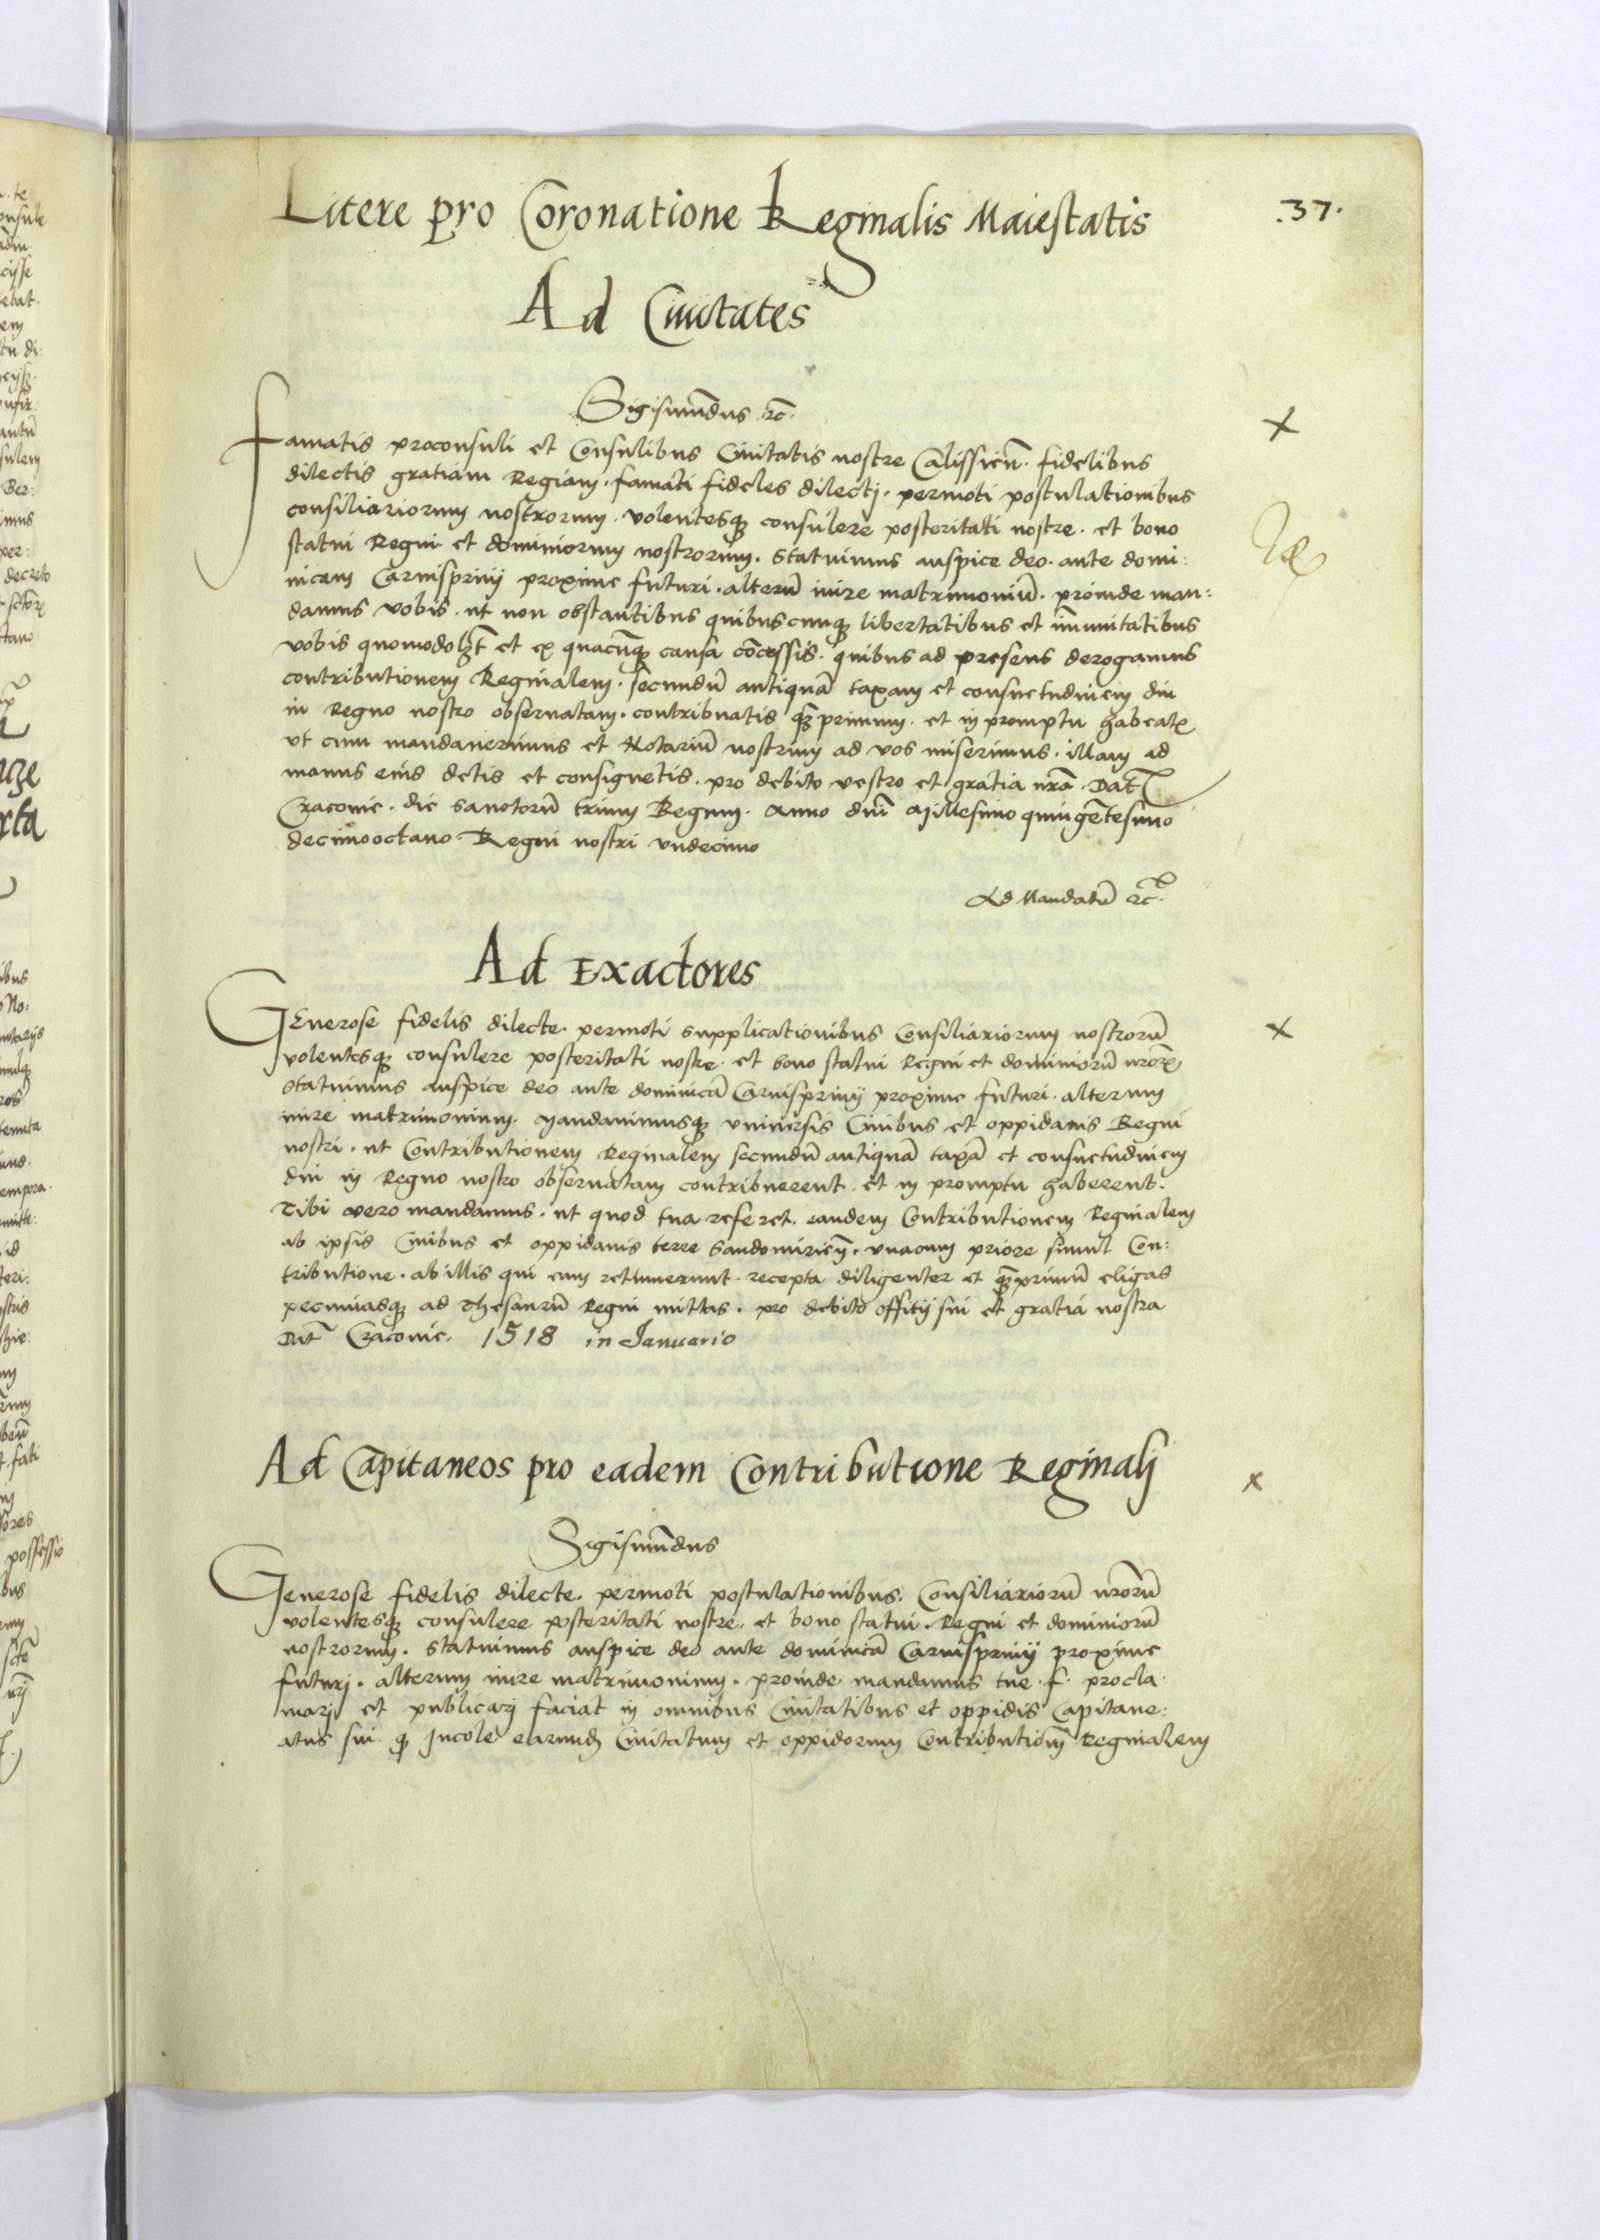 .37.
Litere pro Coronatione Reginalis Maiestatis
Ad Ciuitates
Sigismundus ꝛc̄.
Famatis proconsuli et Consulibus Ciuitatis nostre Calissien̄. fidelibus
dilectis gratiam Regiam. famati fideles dilectj. permoti postulationibus
consiliariorum nostrorum. volentesqꝫ consulere posteritati nostre. et bono
statui Regni et dominiorum nostrorum. Statuimus auspice deo. ante domi:
nicam Carnispriuij proxime futuri. alterū inire matrimoniū. proinde man:
damus vobis. ut non obstantibus quibuscunqꝫ libertatibus et im̄unitatibus
vobis quomodolꝫt̄ et ex quacūqꝫ causa cōcessis. quibus ad presens derogamus
contributionem Reginalem. secundū antiquā taxam et consuetudinem diu
in Regno nostro obseruatam. contribuatis qꝫprimum. et in promptu habeatꝭ
vt cum mandauerimus et Notariū nostrum ad vos miserimus. illam ad
manus eius detis et consignetis. pro debito vestro et gratia nrā. Dat̄
Cracouie. die Sanctorū trium Regum. Anno dn̄i Millesimo quingētesimo
decimooctauo. Regni nostri vndecimo
Ad Mandatū ꝛc̄.
Ad Exactores
GEnerose fidelis dilecte. permoti supplicationibus Consiliariorum nostrorū
volentesqꝫ consulere posteritati nostre. et bono statui Regni et dominiorū nrorꝝ
Statuimus auspice deo ante dominicā Carnispriuij proxime futuri. alterum
inire matrimonium. Mandauimusqꝫ vniuersis Ciuibus et oppidanis Regni
nostri. ut Contributionem Reginalem secundū antiquā taxā et consuetudinem
diu in Regno nostro obseruatam contribuerent. et in promptu haberent.
Tibi vero mandamus. ut quod tua referet. eandem Contributionem Reginalem
ab ipsis Ciuibus et oppidanis terre Sandomirieñ. vnacum priore simul Con:
tributione. ab illis qui eum retinuerunt. recepta diligenter et qꝫprimū eligas
pecuniasqꝫ ad Thesaurū Regni mittas. pro debito offitij sui et gratia nostra
Dat̄ Cracouie. 1518 in Januario
Ad Capitaneos pro eadem Contributione Reginalj
Sigismūdus
Generose fidelis dilecte. permoti postulationibus. Consiliariorū nrorū
volentesqꝫ consulere posteritati nostre. et bono statui. Regni et dominiorū
nostrorum. Statuimus auspice deo ante dominicā Carnispriuij proxime
futurj. alterum inire matrimonium. proinde mandamus tue. f. procla:
marj et publicarj faciat in omnibus Ciuitatibus et oppidis Capitane:
atus sui. qꝫ Incole earundꝫ Ciuitatum et oppidorum Contributionē Reginalem